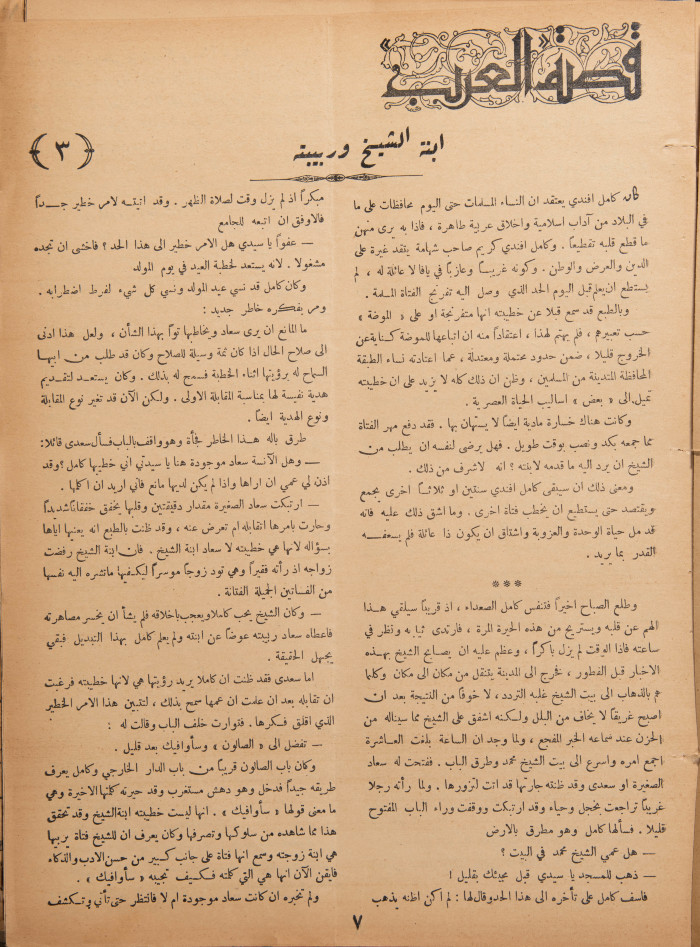 قصة العرب
ابنة الشيخ وربيبته
﴿ ٣ ﴾
كان كامل افندي يعتقد ان النساء المسلمات حتى اليوم محافظات على ما
في البلاد من آداب اسلامية واخلاق عربية طاهرة ، فاذا به يرى منهن
ما قطع قلبه تقطيعاً . وكامل افندي كريم صاحب شهامة يتقد غيرة على
الدين والعرض والوطن . وكونه غريبــاً وعازباً في يافا لا عائلة له ، لم
يستطع ان يعلم قبل اليوم الحد الذي وصل اليه تفرنج الفتاة المسلمة .
وبالطبع قد سمع قبلا عن خطيبته انها متفرنجة او على « الموضة »
حسب تعبيرهم ، فلم يهتم لهذا ، اعتقاداً منه ان اتباعها للموضة كناية عن
الخروج قليلا ، ضمن حدود محتملة ومعتدلة ، عما اعتادته نساء الطبقة
المحافظة المتدينة من المسلمين ، وظن ان ذلك كله لا يزيد على ان خطيبته
تميل الى « بعض » اساليب الحياة العصرية .
وكانت هناك خسارة مادية ايضاً لا يستهان بها . فقد دفع مهر الفتاة
مما جمعه بكد ونصب بوقت طويل . فهل يرضى لنفسه ان يطلب من
الشيخ ان يرد اليه ما قدمه لابنته ؟ انه لاشرف من ذلك .
ومعنى ذلك ان سيبقى كامل افندي سنتين او ثلاثــاً اخرى يجمع
ويقتصد حتى يستطيع ان يخطب فتاة اخرى . وما اشق ذلك عليه فانه
قد مل حياة الوحدة والعزوبة واشتاق ان يكون ذا عائلة فلم يسعفــه
القدر بما يريد .
***
وطلع الصباح اخيراً فتنفس كامل الصعداء ، اذ قريباً سيلقي هــذا
الهم عن قلبه ويستريح من هذه الحيرة المرة ، فارتدى ثيابه ونظر في
ساعته فاذا الوقت لم يزل باكراً ، وعظم عليه ان يصابح الشيخ بهــذه
الاخبار قبل الفطور ، فخرج الى المدينة يتنقل من مكان الى مكان وكلما
هم بالذهاب الى بيت الشيخ غلبه التردد ، لا خوفاً من النتيجة بعد ان
اصبح غريقاً لا يخاف من البلل ولكنه اشفق على الشيخ مما سيناله من
الحزن عند سماعه الخبر المفجع ، ولما وجد ان الساعة بلغت العاشرة
اجمع امره واسرع الى بيت الشيخ محمد وطرق الباب . ففتحت له سعاد
الصغيرة او سعدى وقد ظنته جارتها قد اتت لتزورها . ولما رأته رجلا
غريباً تراجعت بخجل وحياء وقد ارتبكت ووقفت وراء الباب المفتوح
قليلا . فسألها كامل وهو مطرق بالارض
— هل عمي الشيخ محمد في البيت ؟
— ذهب للمسجد يا سيدي قبل مجيئك بقليل !
فاسف كامل على تأخره الى هذا الحد وقال لها : لم اكن اظنه يذهب
مبكراً اذ لم يزل وقت لصلاة الظهر . وقد اتيته لامر خطير جــداً
فالاوفق ان اتبعه للجامع
— عفواً يا سيدي هل الامر خطير الى هذا الحد ؟ فاخشى ان تجده
مشغولا . لانه يستعد لخطبة العيد في يوم المولد
وكان كامل قد نسي عيد المولد ونسي كل شيء لفرط اضطرابه .
ومر بفكره خاطر جديد :
ما المانع ان يرى سعاد ويخاطبها تواً بهذا الشأن ، ولعل هذا ادنى
الى صلاح الحال اذا كان ثمة وسيلة للصلاح وكان قد طلب من ابيهــا
السماح له برؤيتها اثناء الخطبة فسمح له بذلك . وكان يستعــد لتقديم
هدية نفيسة لها بمناسبة المقابلة الاولى . ولكن الآن قد تغير نوع المقابلة
ونوع الهدية ايضاً .
طرق باله هــذا الخاطر فجأة وهو واقف بالباب فسأل سعدى قائلا :
— وهل الآنسة سعاد موجودة هنا يا سيدتي اني خطيبها كامل ؟ وقد
اذن لي عمي ان اراها واذا لم يكن لديها مانع فاني اريد ان اكلمها .
— ارتبكت سعاد الصغيرة مقدار دقيقتين وقلبها يخفق خفقاناً شديداً
وحارت بامرها اتقابله ام تعرض عنه ، وقد ظنت بالطبع انه يعنيها اياها
بسؤاله لانها هي خطيبته لا سعاد ابنة الشيخ . فان ابنة الشيخ رفضت
زواجه اذ رأته فقيراً وهي تود زوجاً موسراً ليكفيها ما تشره اليه نفسها
من الفساتين الجميلة الفتانة .
— وكان الشيخ يحب كاملا ويعجب باخلاقه فلم يشأ ان يخسر مصاهرته
فاعطاه سعاد ربيبته عوضاً عن ابنته ولم يعلم كامل بهذا التبديل فبقي
يجهل الحقيقة .
اما سعدى فقد ظنت ان كاملا يريد رؤيتها هي لانها خطيبته فرغبت
ان تقابله بعد ان علمت ان عمها سمح بذلك ، لتتبين هذا الامر الخطير
الذي اقلق فكرها . فتوارت خلف الباب وقالت له :
— تفضل الى « الصالون » وسأوافيك بعد قليل .
وكان باب الصالون قريباً من باب الدار الخارجي وكامل يعرف
طريقه جيداً فدخل وهو دهش مستغرب وقد حيرته كلمتها الاخيرة وهي
ما معنى قولها « سأوافيك » . انها ليست خطيبته ابنة الشيخ وقد تحقق
هذا مما شاهده من سلوكها وتصرفها وكان يعرف ان للشيخ فتاة يربيها
هي ابنة زوجته وسمع انها فتاة على جانب كبير من حسن الادب والذكاء
فايقن الآن انها هي التي كلمته فكيف تجيبه « سأوافيك » .
ولم تخبره ان كانت سعاد موجودة ام لا فانتظر حتى تأتي وتكشف
٧